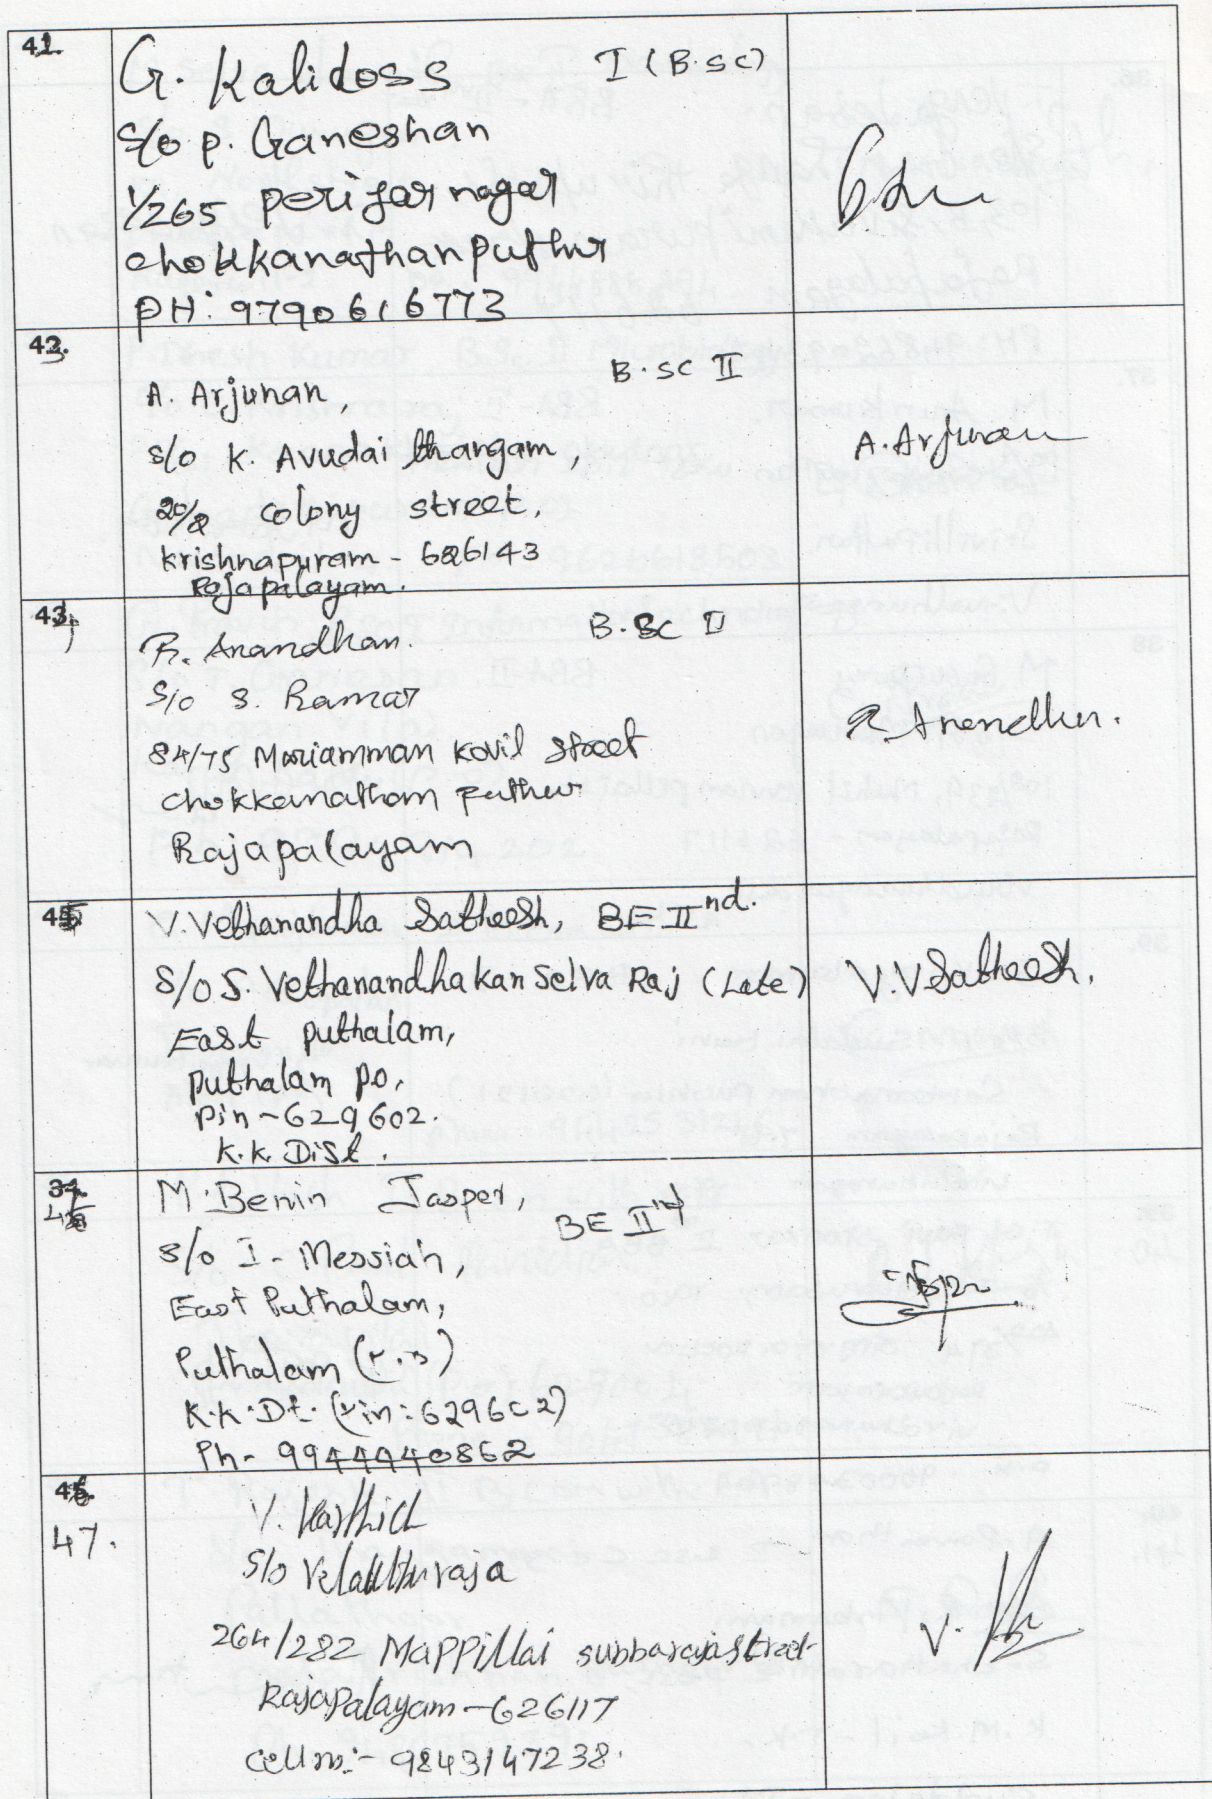 41.
G. Kalidoss I (B.sc)
S/o P. Ganeshan
1/265 periyar nagar
chokkanathanputhur
PH: 9790616773
A. Arjunan, B.SC II
S/o K. Avudai thangam,
20/2 colony street,
Krishnapuram - 626143
Rajapalayam.
A. Arjunan
R. Anandhan. B.SC II
S/o S. Ramar
84/75 Mariamman Kovil Street
Chokkanatham puthur
Rajapalayam
R. Anandhan.
V. Vethanandha Satheesh, BE IInd.
S/o S. Vethanandhakan Selva Raj (Late)
V.V Satheesh.
East puthalam,
Puthalam P.O,
Pin - 629602.
K.K. Dist.
M. Benin Jasper, BE IInd
S/o I. Messiah,
East Puthalam,
Puthalam (P.O)
K.K. Dt. (Pin: 629602)
Ph- 9944440862
47.
V. Karthick
S/o
264/282 Mappillai subbaraja street
Rajapalayam - 626117
Cell no:- 9843147238.
V.